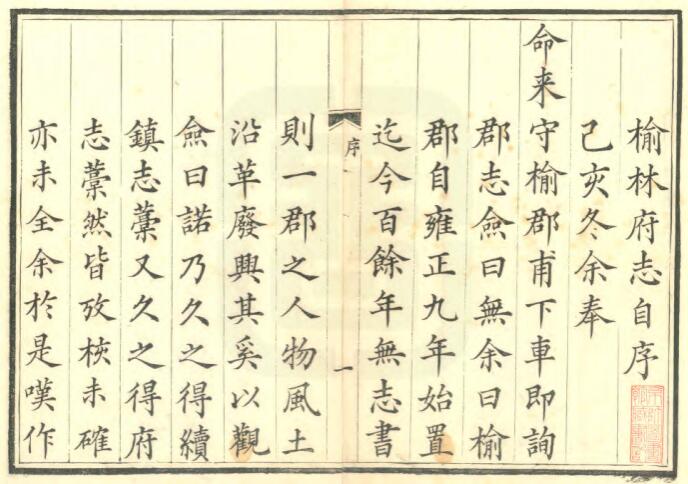 榆林府志自序
己亥冬余奉
命来守榆郡甫下車即詢
郡志僉曰無余曰榆
郡自雍正九年始置
迄今百餘年無志書
序
一
則一郡之人物風土
沿革廢興其奚以觀
僉曰諾乃久之得續
鎮志藁又久之得府
志藁然皆攷核未確
亦未全余於是嘆作